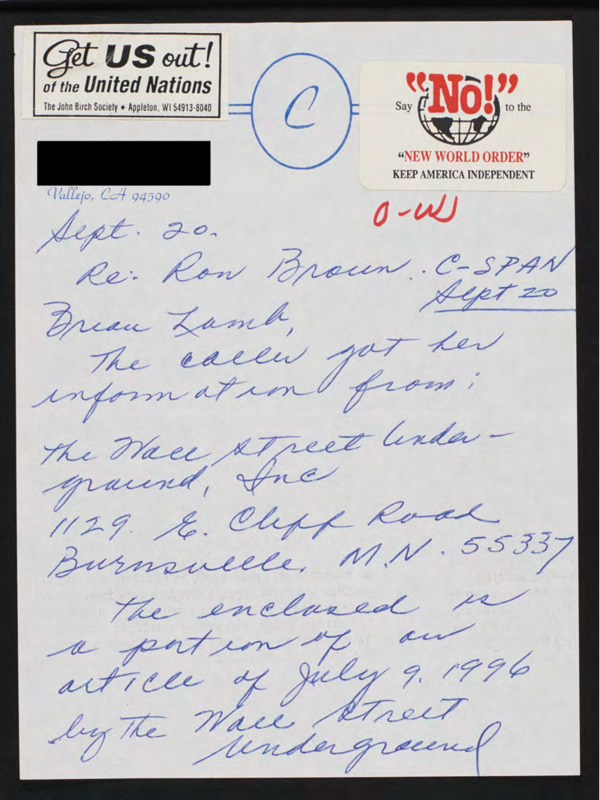 Get US out!
of the United Nations
The John Birch Society • Appleton, WI 54913-8040
C
Say "NO!" to the
"NEW WORLD ORDER"
KEEP AMERICA INDEPENDENT
Vallejo, CA 94590
O-W
Sept. 20.
Re: Ron Brown. C-SPAN
Sept 20
Brian Lamb,
The caller got her
information from:
The Wall Street Under-
ground, Inc
1129. E. Cliff Road
Burnsville. M.N. 55337
The enclosed is
a portion of an
article of July 9, 1996
by the Wall Street
Underground